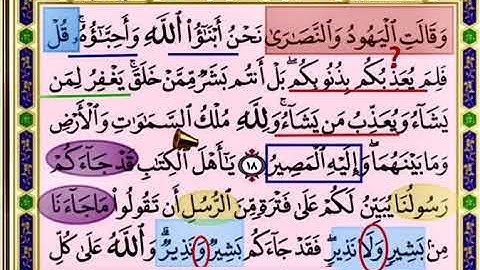 وَقَالَتِ الْيَهُودُ وَالنَّصَارَىٰ نَحْنُ أَبْنَاؤُا اللَّهِ وَأَحِبَّاؤُهُ ۚ قُلْ
فَلِمَ يُعَذِّبُكُم بِذُنُوبِكُم ۖ بَلْ أَنتُم بَشَرٌ مِّمَّنْ خَلَقَ ۚ يَغْفِرُ لِمَن
يَشَاءُ وَيُعَذِّبُ مَن يَشَاءُ ۚ وَلِلَّهِ مُلْكُ السَّمَاوَاتِ وَالْأَرْضِ
وَمَا بَيْنَهُمَا ۖ وَإِلَيْهِ الْمَصِيرُ ١٨ يَا أَهْلَ الْكِتَابِ قَدْ جَاءَكُمْ
رَسُولُنَا يُبَيِّنُ لَكُمْ عَلَىٰ فَتْرَةٍ مِّنَ الرُّسُلِ أَن تَقُولُوا مَا جَاءَنَا
مِن بَشِيرٍ وَلَا نَذِيرٍ ۖ فَقَدْ جَاءَكُم بَشِيرٌ وَنَذِيرٌ ۗ وَاللَّهُ عَلَىٰ كُلِّ